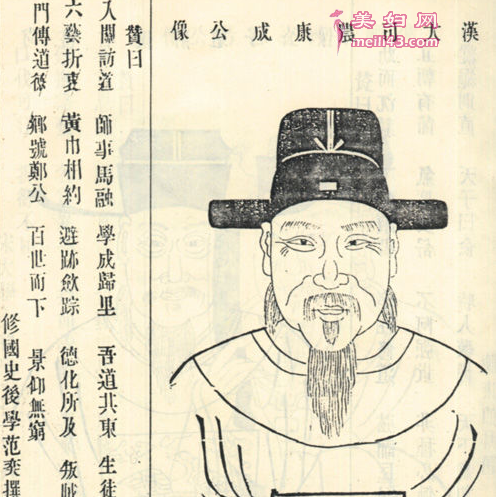 漢大司農康成公像
美妇网
meili9.com
贊曰
入關訪道 師事馬融 學成歸里 吾道共東 生徒
六藝折衷 黃巾相約 避跡斂踪 德化所及 叛賊
門傳道德 鄉號鄭公 百世而下 景仰無窮
修國史後學范奕撰